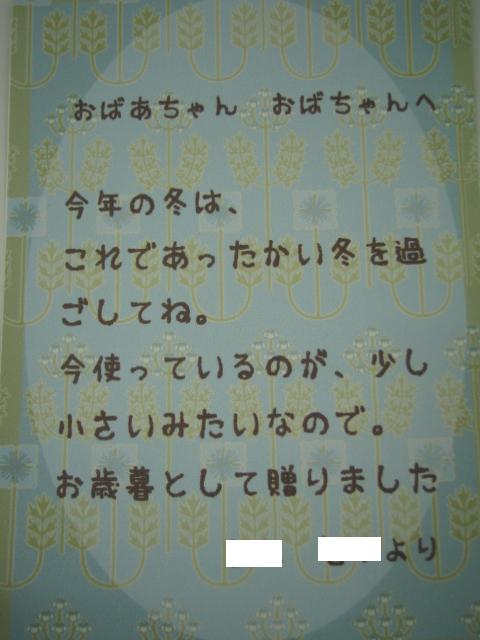 おばあちゃん　おばちゃんへ
今年の冬は、
これであったかい冬を過
ごしてね。
今使っているのが、少し
小さいみたいなので。
お歳暮として贈りました
より